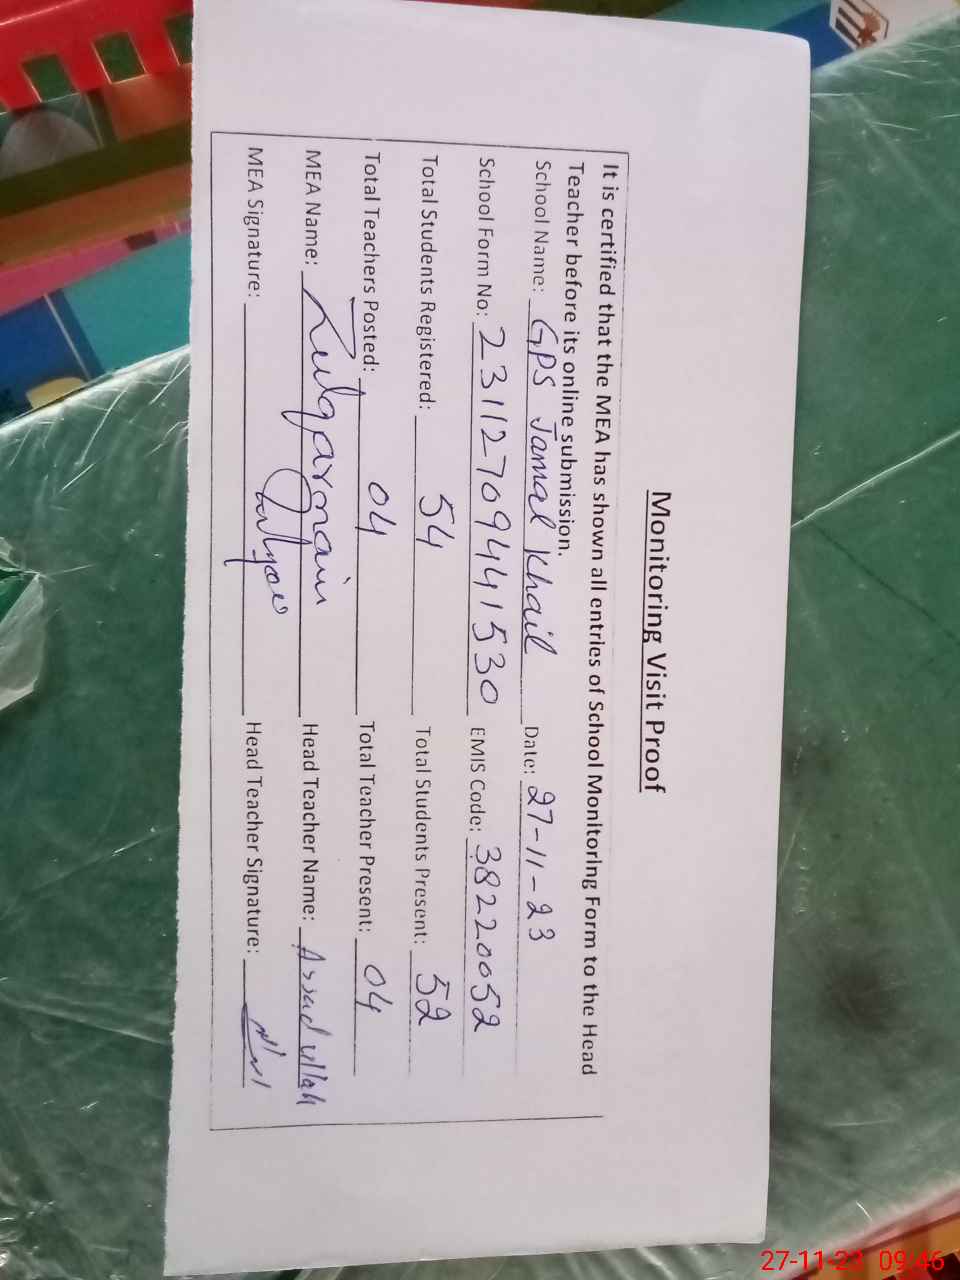 Monitoring Visit Proof
It is certified that the MEA has shown all entries of School Monitoring Form to the Head
Teacher before its online submission.
School Name: GPS Jamal Khail Date: 27-11-23
School Form No: 23112709441530 EMIS Code: 38220052
Total Students Registered: 54 Total Students Present: 52
Total Teachers Posted: 04 Total Teacher Present: 04
MEA Name: Zulqarnain Head Teacher Name: Assad ullah
MEA Signature: Head Teacher Signature:
27-11-23 09:46